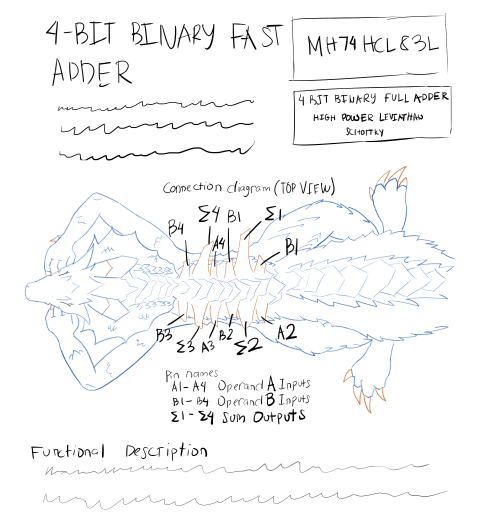 4-BIT BINARY FAST
ADDER
MH74HCL83L
4 BIT BINARY FULL ADDER
HIGH POWER LEVIATHAN
SCHOTTKY
Connection diagram (TOP VIEW)
B4 Σ4 A4 B1 Σ1 B1
B3 Σ3 A3 B2 Σ2 A2
Pin names
A1-A4 Operand A Inputs
B1-B4 Operand B Inputs
Σ1-Σ4 Sum Outputs
Functional Description